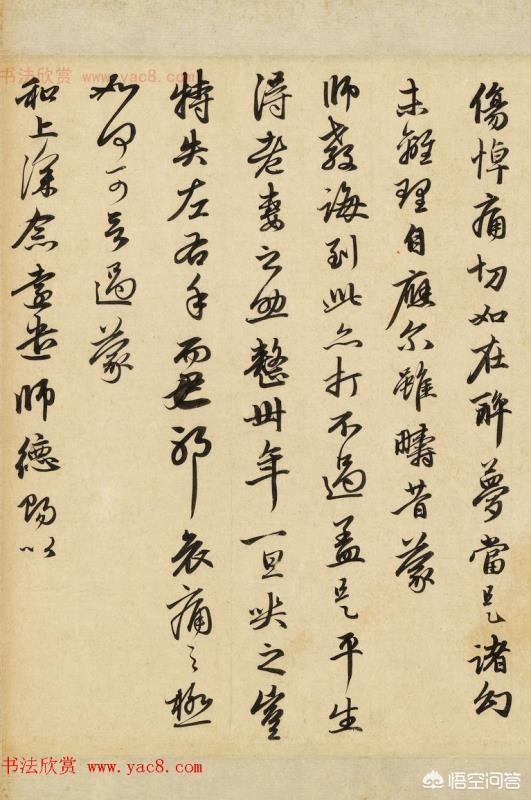 书法欣赏 www.yac8.com
傷悼痛切如在醉夢當是諸幻
未離理自應尔雖疇昔蒙
師教誨到此亦打不過盖是平生
得老妻之助整卅年一旦哭之豈
特失左右手而已耶哀痛之極
如何可言過蒙
和上深念遠遣師德賜以
书法欣赏 www.yac8.com
悟空问答